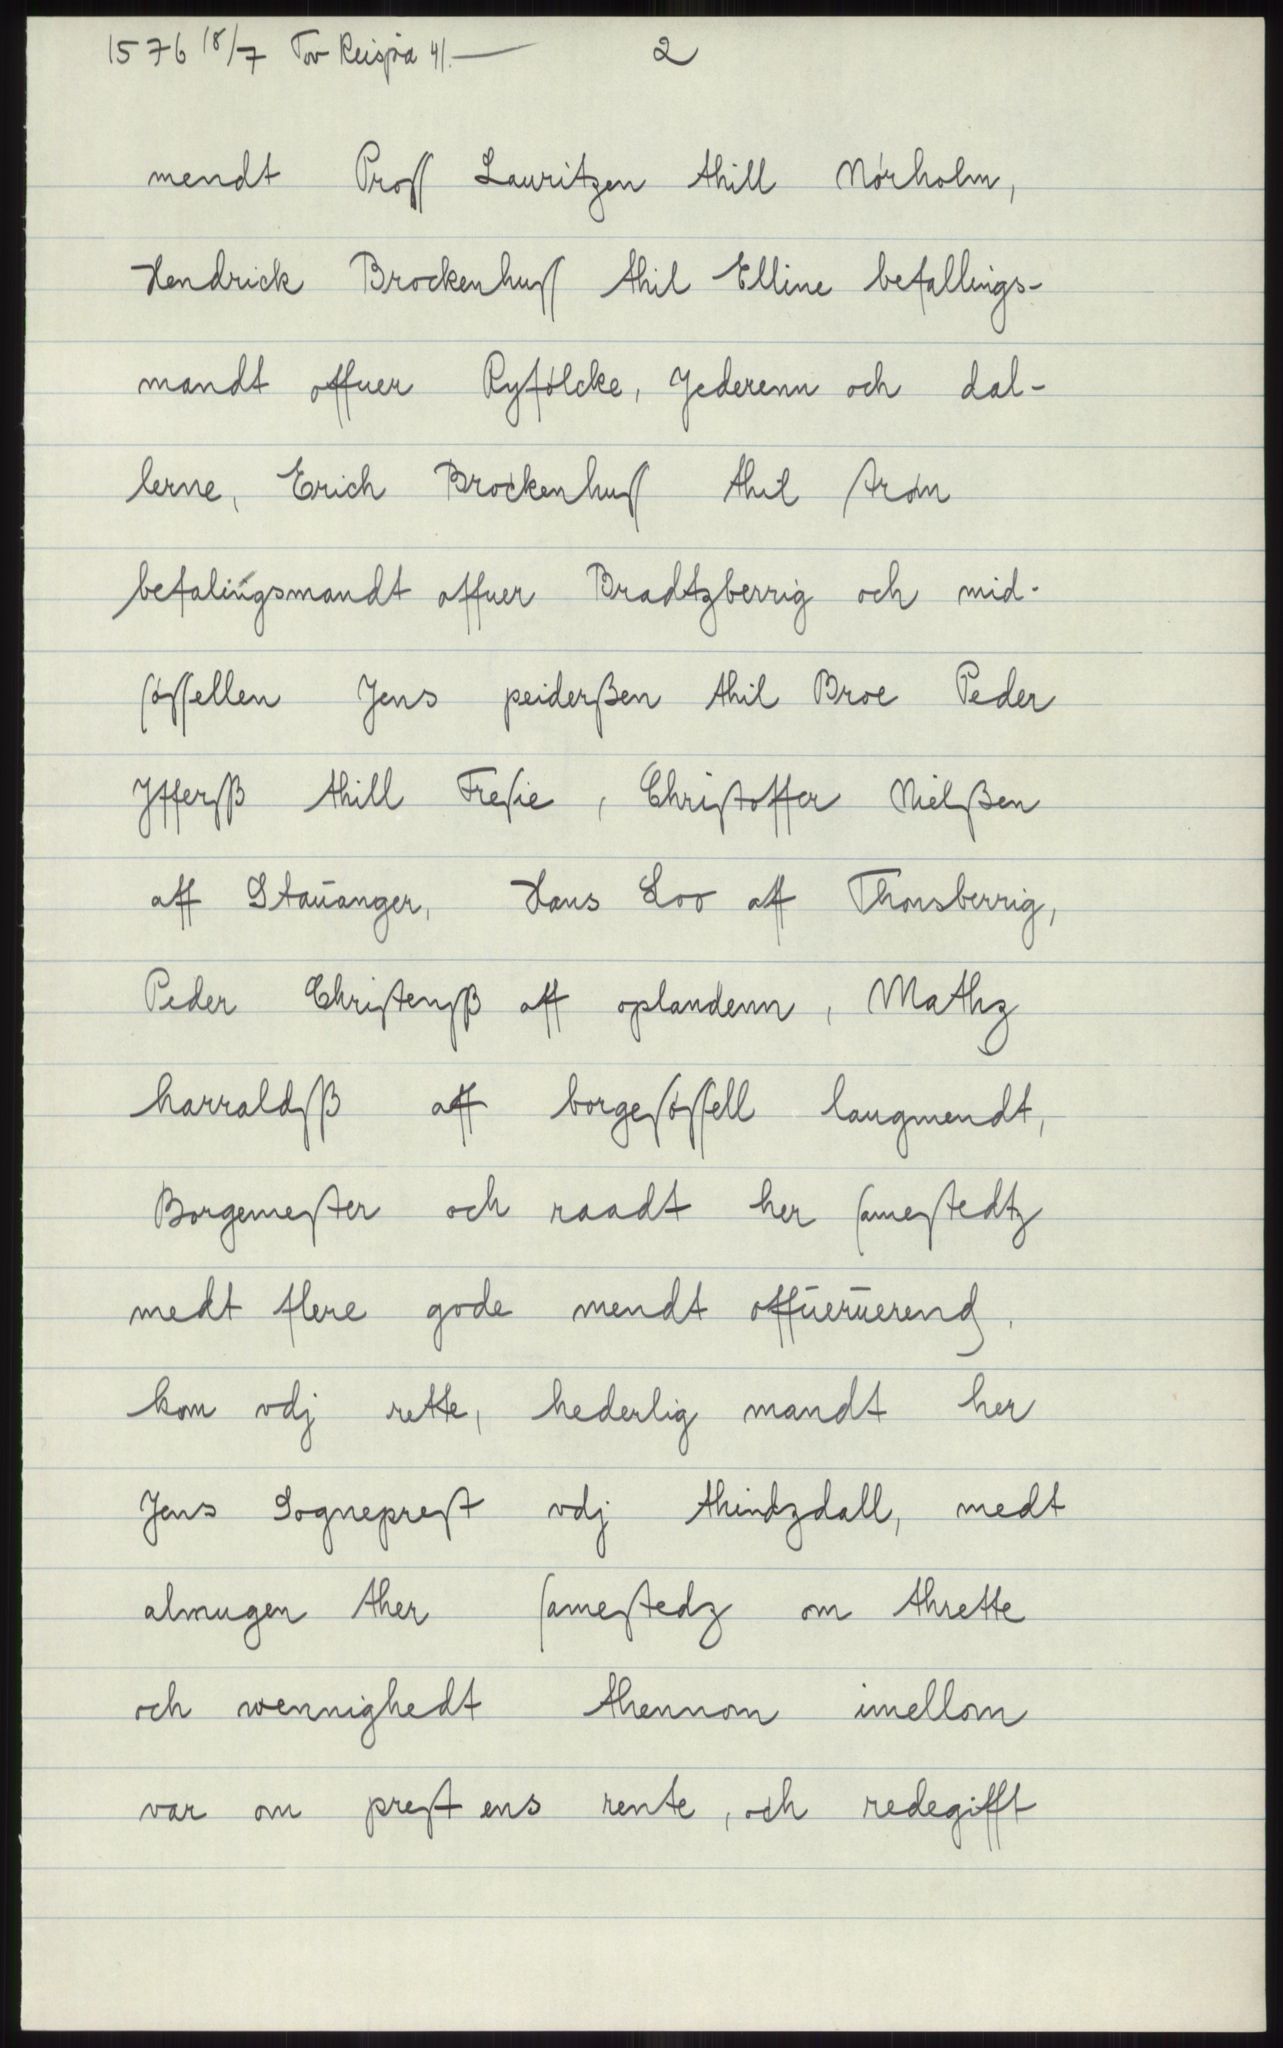 1576 18/7 Tov Reisjaa 41.— 2
mendt Proſſ Lauritzen thill Nørholm,
Hendrick Brockenhuſſ thil Elline befallings-
mandt offuer Ryfølcke, Jederenn och dal-
lerne, Erich Brockenhuſſ thil
befalingsmandt offuer Bradtzberrig och mid-
ſøſſellen Jens peiderßen thil Broe Peder
Jfferſß thill Freſie, Chriſtoffer Nielßen
aff Staŭanger, Hans Loo aff Thonsberrig,
Peder Chriſtenſß aff oplandenn, Mathz
harraldſß aff borgeſøſſell laugmendt,
Borgemeſter och raadt her ſameſtedtz
medt flere gode mendt offŭerŭerend.
kom vdj rette, hederlig mandt her
Jens Sognepreſt vdj thindzdall, medt
almugen ther ſameſtedz om thrette
och wennighedt thennom imellom
var om preſt ens rente, och redegifft